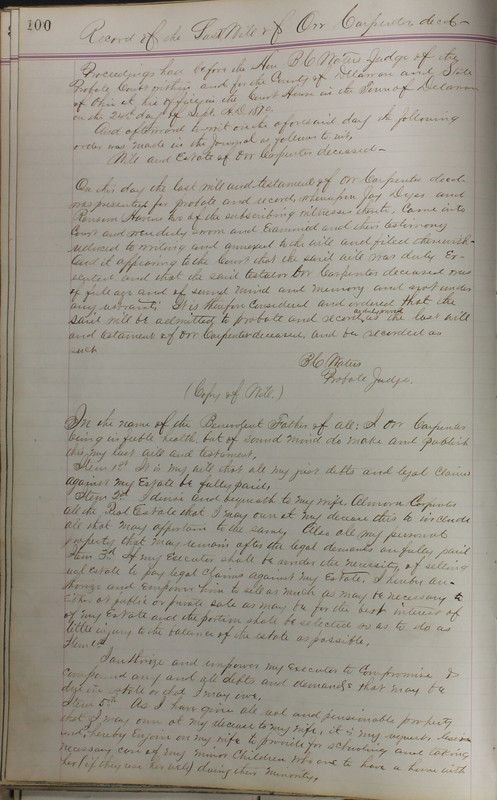 100
Record of the Last Will of Orr Carpenter, decd
Proceedings had before the Hon. B C Waters Judge of the
Probate Court within and for the County of Delaware and State
of Ohio at his office in the Court House in the Town of Delaware
on the 24th day of Sept. A.D. 1879.
And afterward to wit on the aforesaid day the following
order was made in the Journal as follows to wit,
Will and Estate of Orr Carpenter deceased
On this day the last will and testament of Orr Carpenter decd
was presented for probate and record, whereupon Jay Dyer and
Ransom two of the subscribing witnesses thereto, came into
Court and were duly sworn and examined and their testimony
reduced to writing and annexed to the will and filed therewith
And it appearing to the Court that the said will was duly Ex-
ecuted and that the said testator Orr Carpenter deceased was
of full age and of sound mind and memory and not under
any restraint. It is therefore Considered and ordered that the
said will be admitted to probate and record, as the last will
and testament of Orr Carpenter deceased, and be recorded as
such
B C Waters
Probate Judge.
(Copy of Will.)
In the name of the Benevolent Father of all: I Orr Carpenter
being in feeble health but of sound mind do make and publish
this my last will and testament.
Item 1st It is my will that all my just debts and legal claims
against my Estate be fully paid.
Item 2d I devise and bequeath to my wife Carpenter
all the Real Estate that I may own at my decease this to include
all that may appertain to the same, Also all my personal
property that may remain after the legal demands are fully paid
Item 3d If my Executor shall be under the necessity of selling
real estate to pay legal claims against my Estate, I hereby au-
thorize and empower him to sell as much as may be necessary
Either at public or private sale as may be for the best interest of
of my Estate and the portion shall be selected so as to do as
little injury to the balance of the estate as possible.
Item
I authorize and empower my Executor to Compromise &
compound any and all debts and demands that may be
due or that I may owe.
Item 5th As I have given all real and property
that I may own at my decease to my wife, it is my request
and hereby Enjoin on my wife to provide for schooling and taking
necessary care of my minor Children to have a home with
her (if they see ) during their minority.